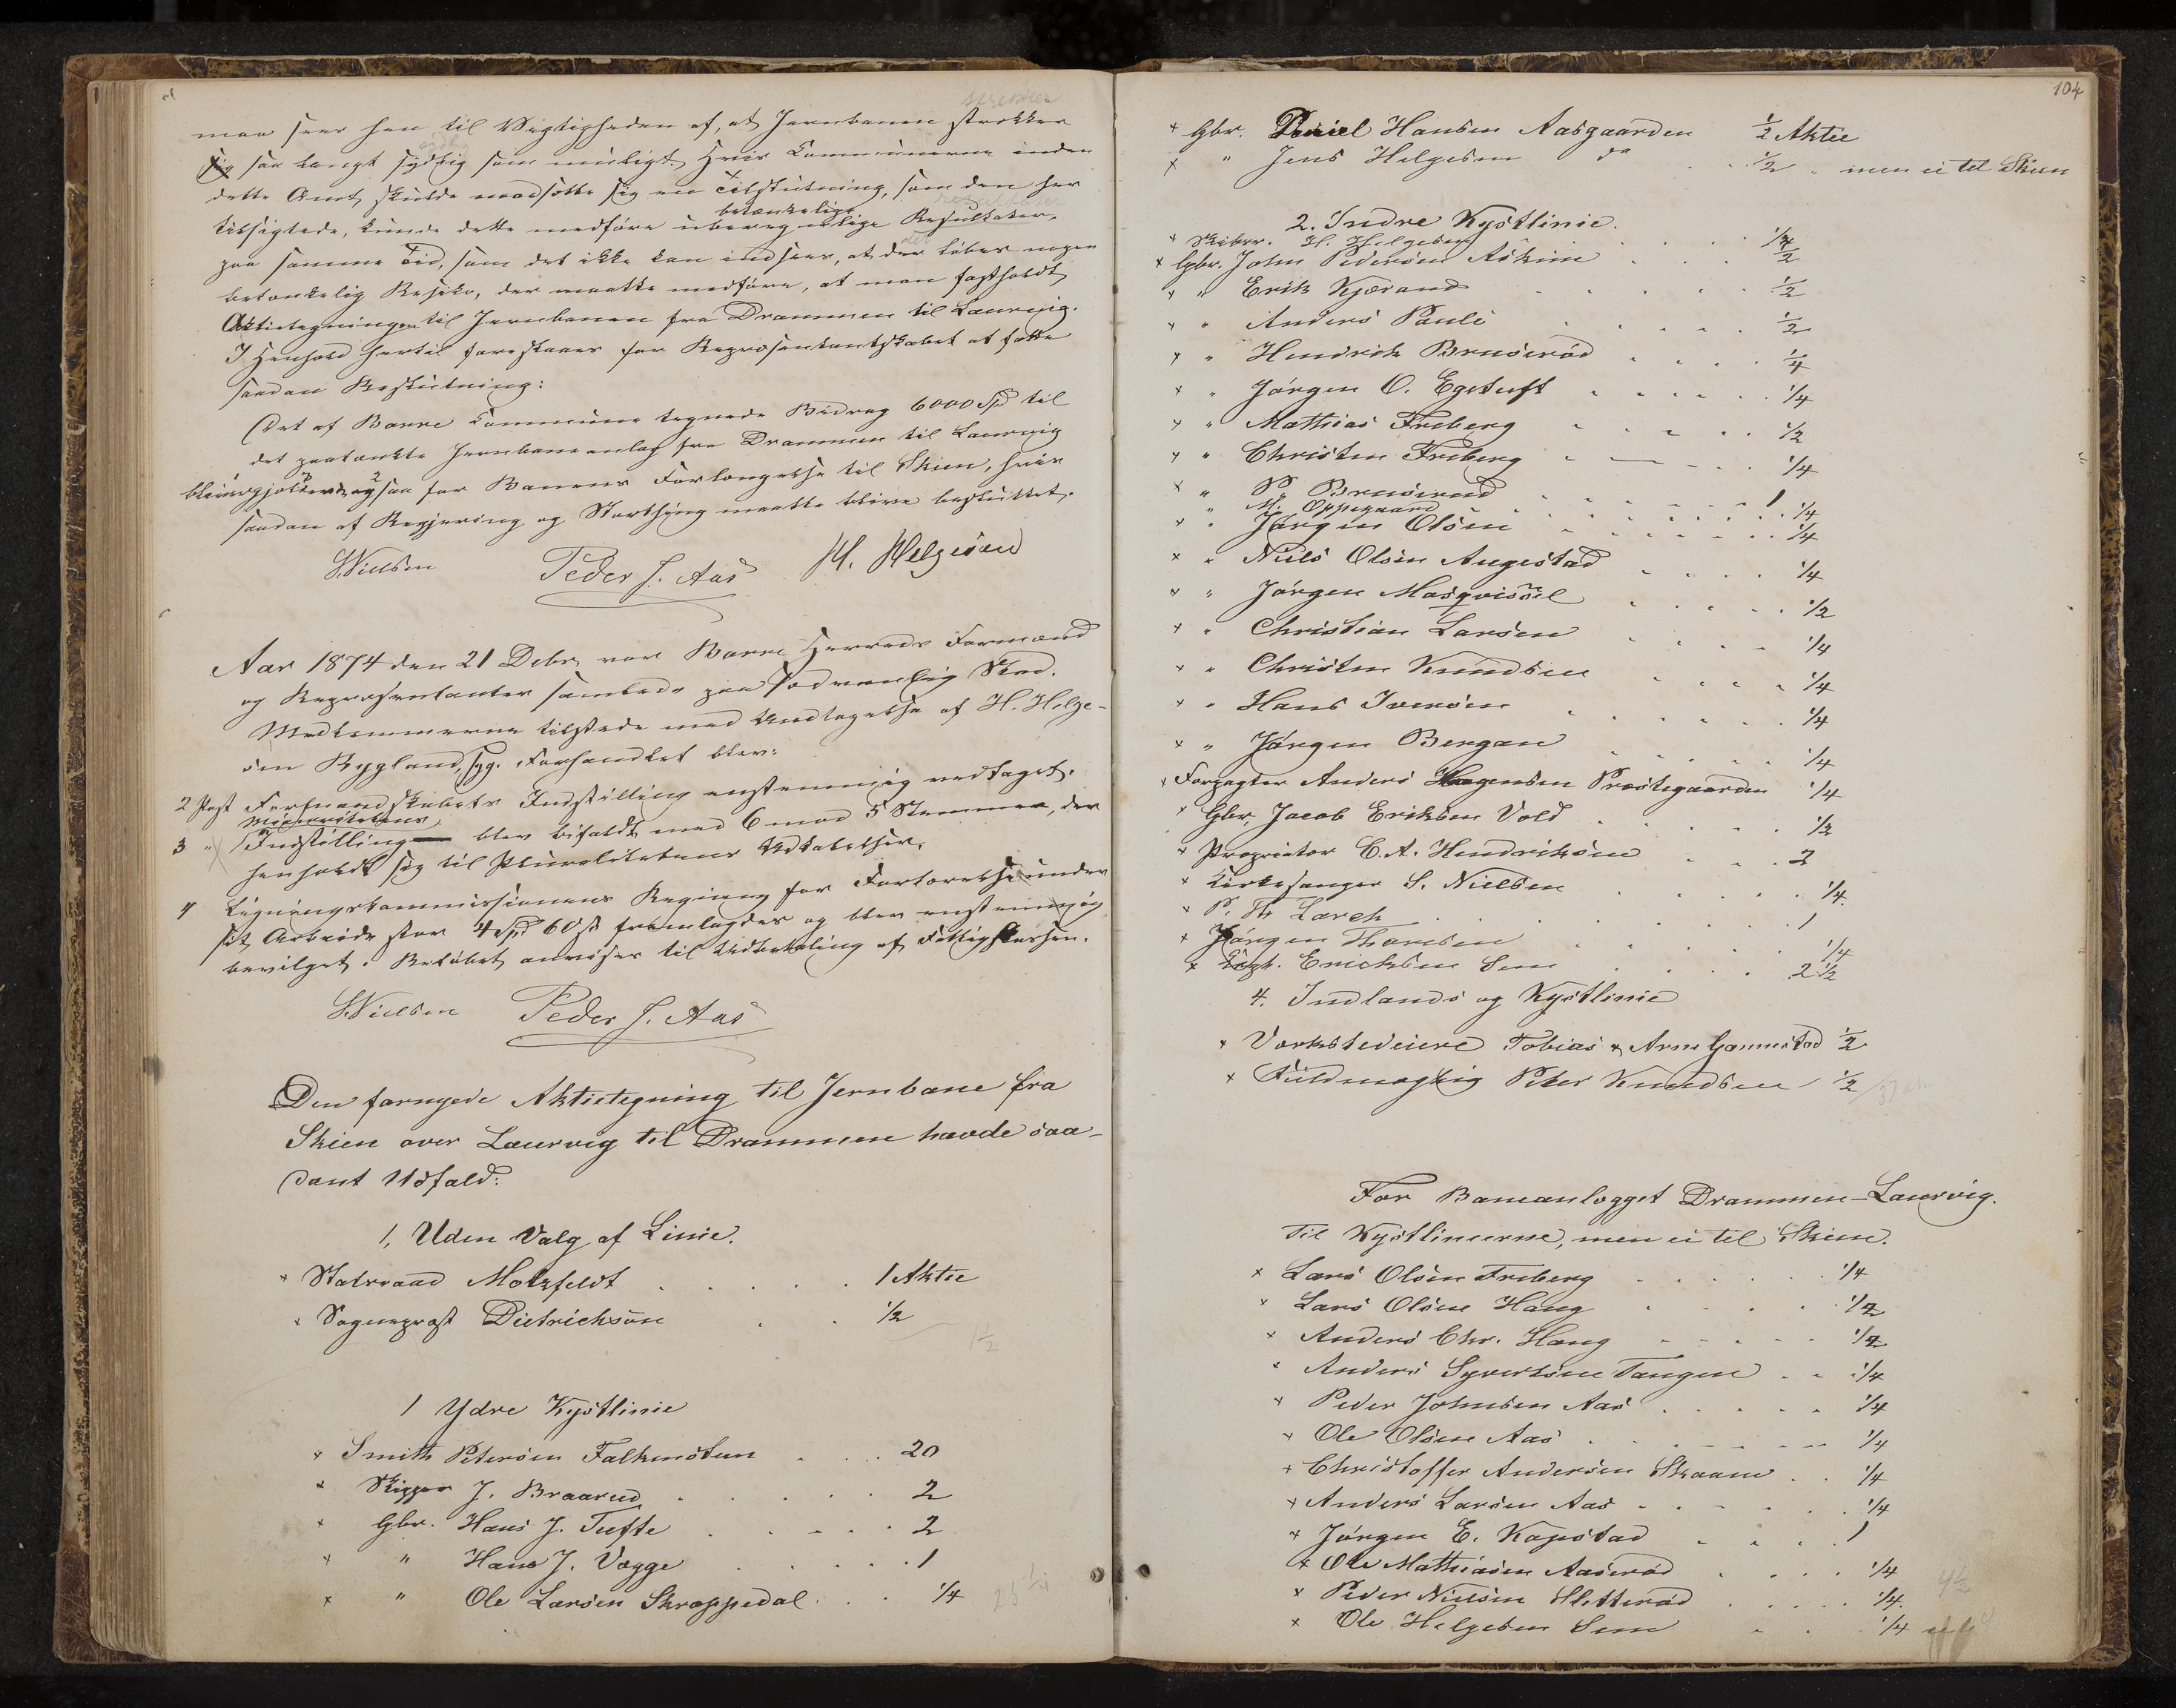 man seer hen til Vigtigheden af, at Jernbanen strækker
sig saa langt sydlig som muligt. Hvis Communerne inden
dette Amt skulde modsætte sig en Tilslutning, som den her
betænkelige
tilsigtede, kunde dette medføre uberegnelige Resultater,
paa samme Tid, som det ikke kan indsees, at der løbes nogen
betænkelig Resiko, der maatte medføre, at man fastholdt
Aktietegningen til Jernbanen fra Drammen til Laurvig.
I Henhold hertil foreslaaes for Repræsentantskabet at fatte
saadan Beslutning:
Det af Borre Commune tegnede Bidrag 6000 Spd til
det paatænkte Jernbaneanlæg fra Drammen til Laurvig
bliver gjældende ogsaa for Banens Forlængelse til Skien, hvis
saadan af Regjering og Storthing maatte blive besluttet.
S. Nielsen Peder J. Aas H. Helgesen
Aar 1874 den 21 Debr. var Borre Herreds Formænd
og Repræsentanter samlede paa sædvanlig Sted.
Medlemmerne tilstede med Undtagelse af H. Helge-
sen Rygland, syg. Forhandlet blev:
2 Post Formandskabets Indstilling enstemmig vedtaget.
Minoritetens
3 " Indstilling blev bifaldt med 6 mod 5 Stemmer, der
henholdt sig til Pluralitetens Udtalelser.
4 Ligningskommissionens Regning for Fortærelse under
sit Arbeide stor 4 Spd 60 sk fremlagdes og blev enstemmig
bevilget. Beløbet anvises til Udbetaling af Fattigkassen.
S. Nielsen Peder J. Aas
Den fornyede Aktietegning til Jernbane fra
Skien over Laurvig til Drammen havde saa-
dant Udfald:
1, Uden Valg af Linie.
× Statsraad Motzfeldt . . . . . 1 Aktie
× Sogneprest Dietrichson . . 1/2
1 1/2
1 Ydre Kystlinie
× Smith Petersen Falkensten . . . 20
× Skipper J. Braarud . . . . . 2
× Gbr. Hans J. Tufte . . . . . 2
× " Hans J. Vægge . . . . . 1
× " Ole Larsen Skrappedal . . . 1/4
25 1/4
104
× Gbr. Daniel Hansen Aasgaarden 1/2 Aktie
× " Jens Helgesen do . . 1/2 " men ei til Skien
2. Indre Kystlinie.
× Skibsr. H. Helgesen . . . . 1/4
× Gbr. John Pedersen Askim . . . . 1/2
× " Erik Kjærand . . . . . 1/2
× " Anders Pauli . . . . . 1/2
× " Hendrik Bruserød . . . . 1/4
× " Jørgen O. Egetuft . . . . . 1/4
× " Mathias Freberg . . . . . 1/2
× " Christen Freberg . . . . 1/4
× " P. Bruserud . . . . . . 1
" M. Oppegaard . . . . . . 1/4
× " Jørgen Olsen . . . . . . 1/4
× " Niels Olsen Augestad . . . . 1/4
× " Jørgen Masqvissel . . . . . 1/2
× " Christian Larsen . . . . 1/4
× " Christen Knudsen . . . . 1/4
× " Hans Iversen . . . . . . 1/4
× " Jørgen Bergan . . . . . 1/4
× Forpagter Anders Haagensen Præstegaarden 1/4
× Gbr. Jacob Eriksen Vold . . . . . 1/2
× Proprietær C. A. Hendriksen . . . 2
× Kirkesanger S. Nielsen . . . . . 1/4
× P. Th. Larch . . . . . . 1
× Jørgen Thoresen . . . . . 1/4
× Capt. Ericksen Sem . . . . 2 1/2
4. Indlands og Kystlinie
× Værkstedeiere Tobias & Arne Gannestad 1/2
× Fuldmægtig Peter Knudsen 1/2
For Baneanlægget Drammen-Laurvig.
Til Kystlinierne, men ei til Skien.
× Lars Olsen Freberg . . . . . 1/4
× Lars Olsen Haug . . . . . 1/2
× Anders Chr. Haug . . . . . 1/2
× Anders Syvertsen Tangen . . 1/4
× Peder Johnsen Aas . . . . . 1/4
× Ole Olsen Aas . . . . . . 1/4
× Christoffer Andersen Skaane . . 1/4
× Anders Larsen Aas . . . . . 1/4
× Jørgen E. Kopstad . . . . 1
× Ole Mathiasen Aaserød . . . . 1/4
× Peder Nielsen Sletterød . . . . . 1/4
× Ole Helgesen Sem . . 1/4
4 1/2